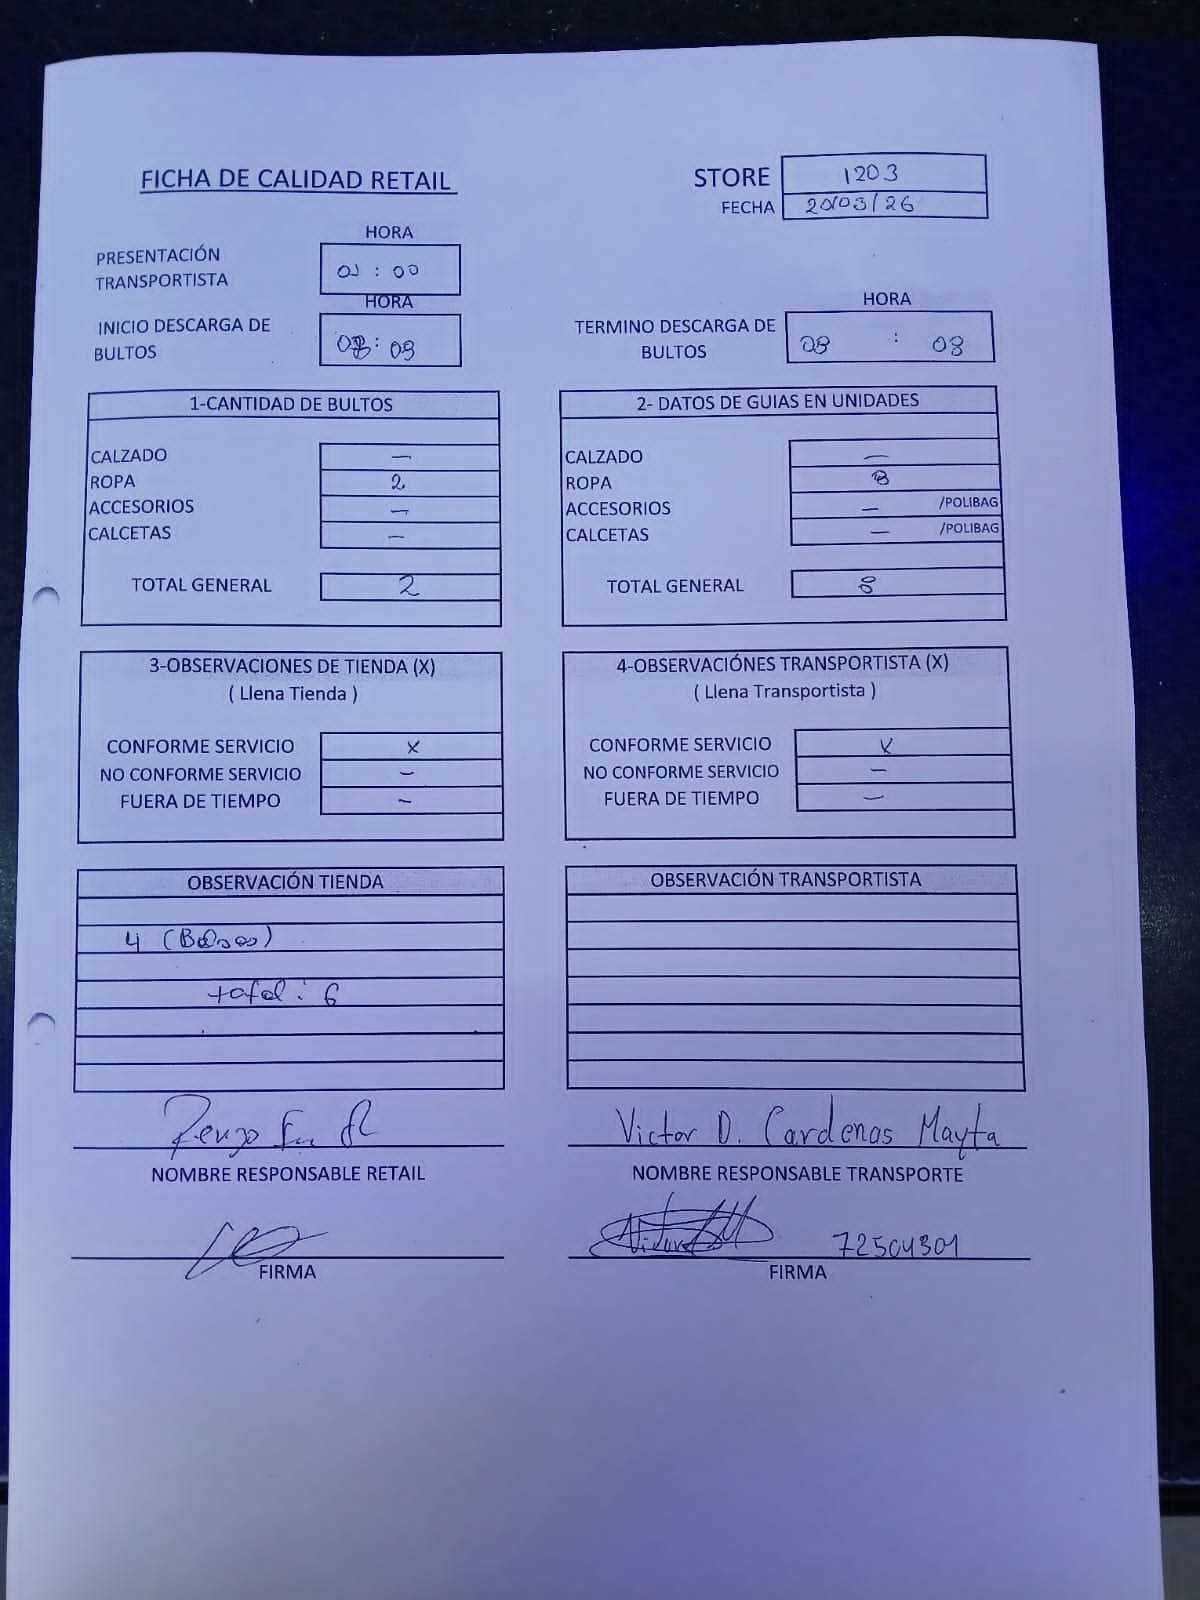 FICHA DE CALIDAD RETAIL
STORE 1203
FECHA 20/03/26
HORA
PRESENTACIÓN TRANSPORTISTA : 00
HORA
INICIO DESCARGA DE BULTOS : 09
HORA
TERMINO DESCARGA DE BULTOS 09 : 09
1-CANTIDAD DE BULTOS
CALZADO —
ROPA 2
ACCESORIOS —
CALCETAS —
TOTAL GENERAL 2
2- DATOS DE GUIAS EN UNIDADES
CALZADO —
ROPA 8
ACCESORIOS — /POLIBAG
CALCETAS — /POLIBAG
TOTAL GENERAL 8
3-OBSERVACIONES DE TIENDA (X)
( Llena Tienda )
CONFORME SERVICIO X
NO CONFORME SERVICIO —
FUERA DE TIEMPO —
4-OBSERVACIÓNES TRANSPORTISTA (X)
( Llena Transportista )
CONFORME SERVICIO X
NO CONFORME SERVICIO —
FUERA DE TIEMPO —
OBSERVACIÓN TIENDA
4 (Bolsas)
total : 6
OBSERVACIÓN TRANSPORTISTA
Renzo
NOMBRE RESPONSABLE RETAIL
FIRMA
Victor D. Cardenas Mayta
NOMBRE RESPONSABLE TRANSPORTE
72504301
FIRMA